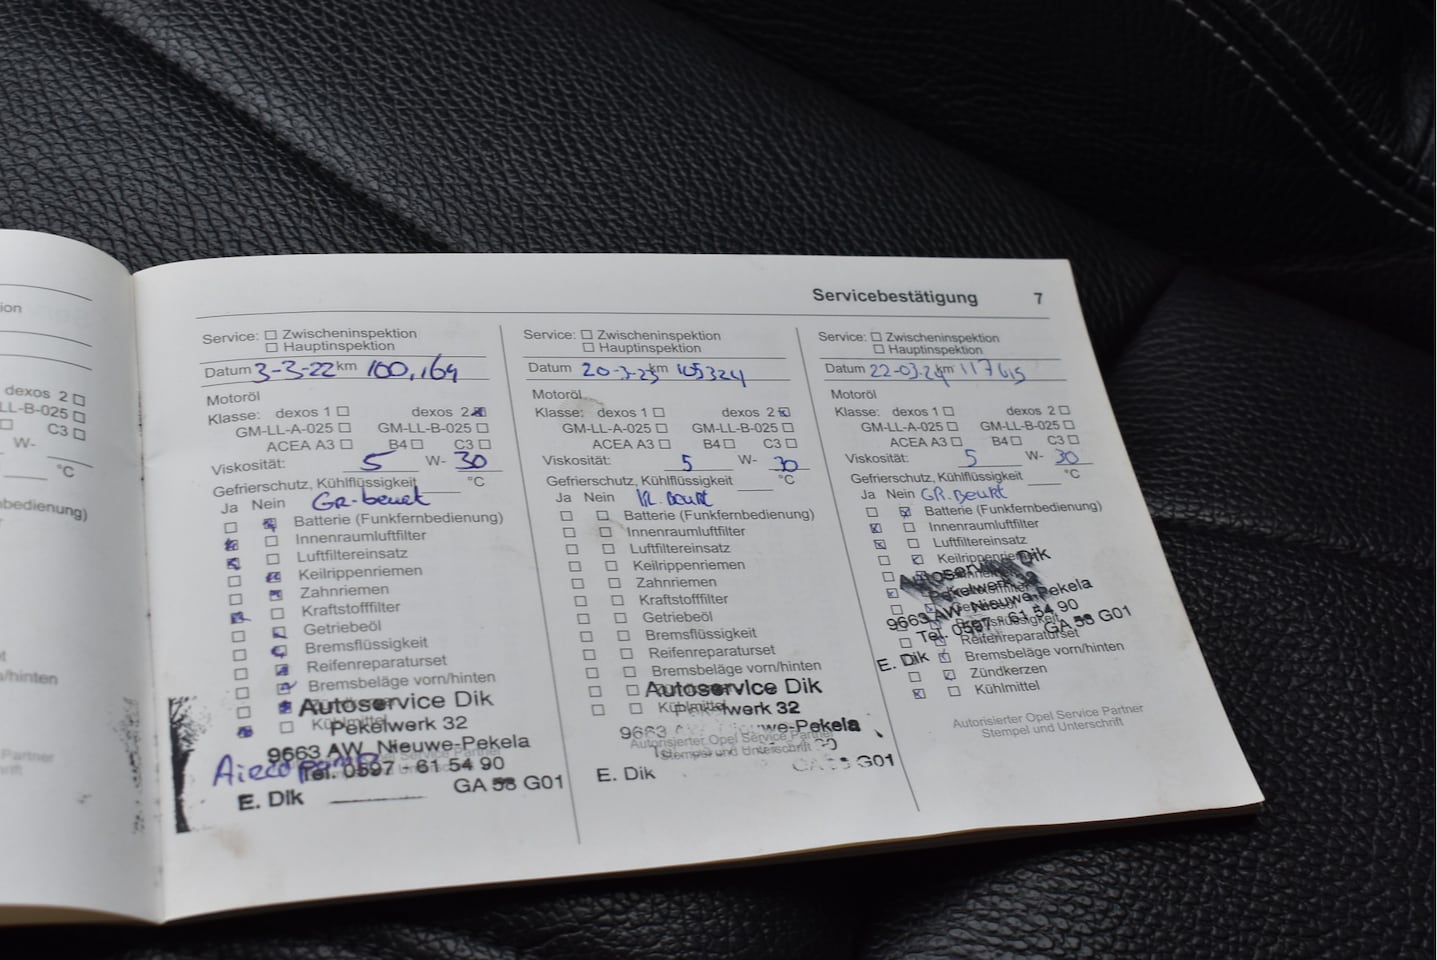 ion
dexos 2
LL-B-025
C3
W-
°C
nbedienung)
t
n/hinten
Partner
hrift
Servicebestätigung 7
Service: Zwischeninspektion
Hauptinspektion
Datum 3-3-22 km 100,169
Motoröl
Klasse: dexos 1 dexos 2
GM-LL-A-025 GM-LL-B-025
ACEA A3 B4 C3
Viskosität: 5 W- 30
Gefrierschutz, Kühlflüssigkeit °C
Ja Nein GR-beurt
Batterie (Funkfernbedienung)
Innenraumluftfilter
Luftfiltereinsatz
Keilrippenriemen
Zahnriemen
Kraftstofffilter
Getriebeöl
Bremsflüssigkeit
Reifenreparaturset
Bremsbeläge vorn/hinten
Kühlmittel
Autoservice Dik
Pekelwerk 32
9663 AW Nieuwe-Pekela
Tel. 0597 - 61 54 90
GA 58 G01
E. Dik
Service: Zwischeninspektion
Hauptinspektion
Datum 20-3-23 km 105324
Motoröl
Klasse: dexos 1 dexos 2
GM-LL-A-025 GM-LL-B-025
ACEA A3 B4 C3
Viskosität: 5 W- 30
Gefrierschutz, Kühlflüssigkeit °C
Ja Nein KL. Beurt
Batterie (Funkfernbedienung)
Innenraumluftfilter
Luftfiltereinsatz
Keilrippenriemen
Zahnriemen
Kraftstofffilter
Getriebeöl
Bremsflüssigkeit
Reifenreparaturset
Bremsbeläge vorn/hinten
Kühlmittel
Autoservice Dik
Pekelwerk 32
9663 Nieuwe-Pekela
Autorisierter Opel Service Partner
Stempel und Unterschrift
E. Dik
G01
Service: Zwischeninspektion
Hauptinspektion
Datum 22-03-24 km 117615
Motoröl
Klasse: dexos 1 dexos 2
GM-LL-A-025 GM-LL-B-025
ACEA A3 B4 C3
Viskosität: 5 W- 30
Gefrierschutz, Kühlflüssigkeit °C
Ja Nein GR. Beurt
Batterie (Funkfernbedienung)
Innenraumluftfilter
Luftfiltereinsatz
Keilrippenriemen
Bremsflüssigkeit
Reifenreparaturset
Bremsbeläge vorn/hinten
Zündkerzen
Kühlmittel
Autoservice Dik
Pekelwerk 32
9663 AW Nieuwe-Pekela
Tel. 0597 - 61 54 90
GA 58 G01
E. Dik
Autorisierter Opel Service Partner
Stempel und Unterschrift